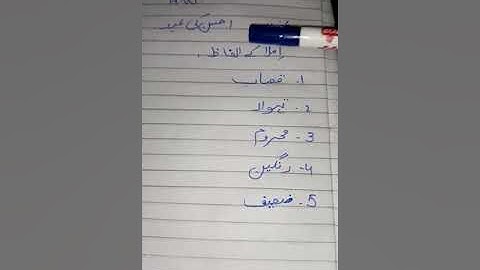 احسن کی عید
املا کے الفاظ .
1. قصاب
2. تہوار
3. محروم
4. رنگین
5. ضعیف